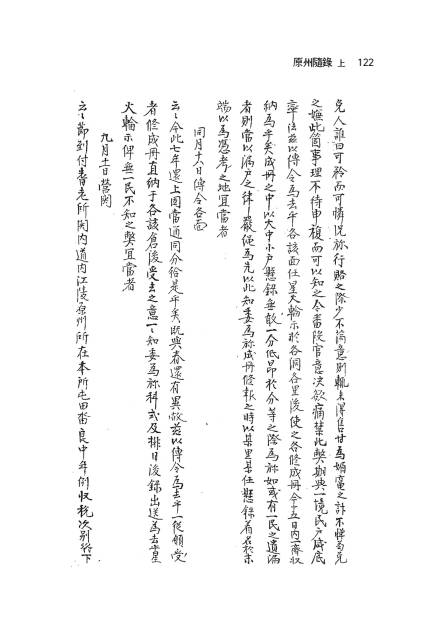 原州隨錄 上 122
免人誰曰可矜而可憐況旀行賂之際少不箇意別輒
之嫌此箇事理不待申複而可以知之今番段官意決欲痛禁此弊期與一境民戶
玆以傳令爲去乎各該面任星火輪示於各洞各里後使之各修成冊今十五日內齊收
納爲乎矣成冊之中以大中小戶懸錄無敢一分低昂於分等之際爲旀如或有一民之遺漏
者則當以漏戶之律嚴繩爲先以此知委爲旀成冊修報之時以某里某任懸錄着名於末
端以爲憑考之地宜當者
同月十六日傳令各面
云云今此七年還上園當通同分給是乎矣旣與春還有異故玆以傳令爲去乎一從願受
者修成冊直納于各該倉後受去之意一一知委爲旀科式及排日後錄出送爲去
火輪示俾無一民不知之弊宜當者
九月十一日營關
云云節到付耆老所關內道內江陵原州所在本所屯田畓良中年例收稅次別將下